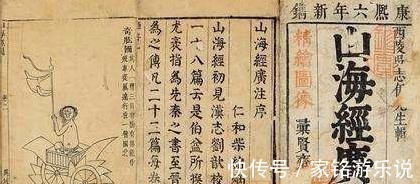 康熙六年新鐫
西陵吳志伊先生輯
山海經廣
精繪圖像
彙賢
山海經廣注序
仁和柴
山海經初見漢志劉歆校
一十八篇云是伯益所撰
尤袤指為先秦之書至晉
為之傳凡二十三篇每卷
奇肱國
快传号 / 家铭游乐说